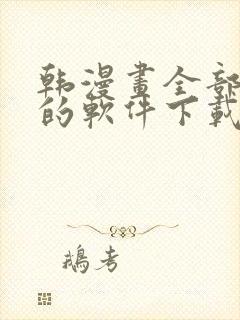 韩漫畫全部
的軟件下載
鵝考